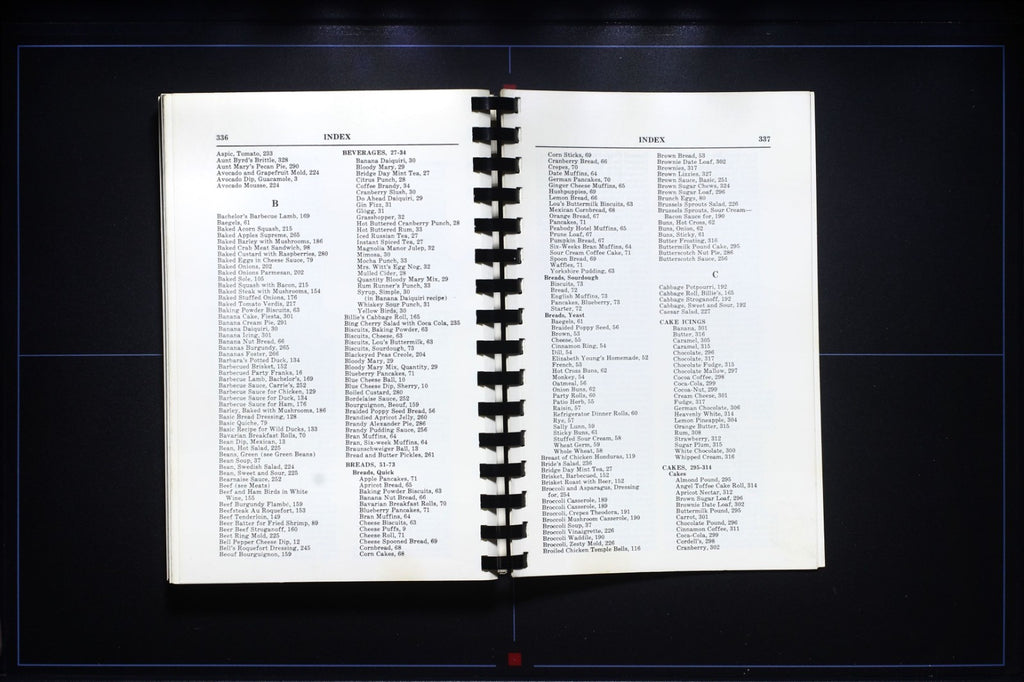 336
INDEX
Aspic, Tomato, 233
Aunt Byrd's Brittle, 328
Aunt Mary's Pecan Pie, 290
Avocado and Grapefruit Mold, 224
Avocado Dip, Guacamole, 3
Avocado Mousse, 224
B
Bachelor's Barbecue Lamb, 169
Bagels, 61
Baked Acorn Squash, 215
Baked Apples Supreme, 265
Baked Barley with Mushrooms, 186
Baked Crab Meat Sandwich, 98
Baked Custard with Raspberries, 280
Baked Eggs in Cheese Sauce, 79
Baked Onions, 202
Baked Onions Parmesan, 202
Baked Sole, 105
Baked Squash with Bacon, 215
Baked Steak with Mushrooms, 154
Baked Stuffed Onions, 176
Baked Tomato Verdis, 217
Baking Powder Biscuits, 63
Banana Cake, Fiesta, 301
Banana Cream Pie, 291
Banana Daiquiri, 30
Banana Icing, 301
Banana Nut Bread, 66
Bananas Burgundy, 265
Bananas Foster, 266
Barbara's Potted Duck, 134
Barbecued Brisket, 152
Barbecued Party Franks, 16
Barbecue Lamb, Bachelor's, 169
Barbecue Sauce, Carrie's, 252
Barbecue Sauce for Chicken, 129
Barbecue Sauce for Duck, 134
Barbecue Sauce for Ham, 176
Barley, Baked with Mushrooms, 186
Basic Bread Dressing, 128
Basic Quiche, 79
Basic Recipe for Wild Ducks, 133
Bavarian Breakfast Rolls, 70
Bean Dip, Mexican, 13
Bean, Hot Salad, 225
Beans, Green (see Green Beans)
Bean Soup, 37
Bean, Swedish Salad, 224
Bean, Sweet and Sour, 225
Bearnaise Sauce, 252
Beef (see Meats)
Beef and Ham Birds in White
Wine, 155
Beef Burgundy Flambi, 159
Beefsteak Au Roquefort, 153
Beef Tenderloin, 149
Beer Batter for Fried Shrimp, 89
Beer Beef Struganoff, 160
Beet Ring Mold, 225
Bell Pepper Cheese Dip, 12
Bell's Roquefort Dressing, 245
Beouf Bourguignon, 159
BEVERAGES, 27-34
Banana Daiquiri, 30
Bloody Mary, 29
Bridge Day Mint Tea, 27
Citrus Punch, 28
Coffee Brandy, 34
Cranberry Slush, 30
Do Ahead Daiquiri, 29
Gin Fizz, 31
Glögg, 31
Grasshopper, 32
Hot Buttered Cranberry Punch, 28
Hot Buttered Rum, 33
Iced Russian Tea, 27
Instant Spiced Tea, 27
Magnolia Manor Julep, 32
Mimosa, 30
Mocha Punch, 33
Mrs. Witt's Egg Nog, 32
Mulled Cider, 28
Quantity Bloody Mary Mix, 29
Rum Runner's Punch, 33
Syrup, Simple, 30
(in Banana Daiquiri recipe)
Whiskey Sour Punch, 31
Yellow Birds, 30
Billie's Cabbage Roll, 165
Bing Cherry Salad with Coca Cola, 235
Biscuits, Baking Powder, 63
Biscuits, Cheese, 63
Biscuits, Lou's Buttermilk, 63
Biscuits, Sourdough, 73
Blackeyed Peas Creole, 204
Bloody Mary, 29
Bloody Mary Mix, Quantity, 29
Blueberry Pancakes, 71
Blue Cheese Ball, 10
Blue Cheese Dip, Sherry, 10
Boiled Custard, 280
Bordelaise Sauce, 252
Bourguignon, Beouf, 159
Braided Poppy Seed Bread, 56
Brandied Apricot Jelly, 260
Brandy Alexander Pie, 286
Brandy Pudding Sauce, 256
Bran Muffins, 64
Bran, Six-week Muffins, 64
Braunschweiger Ball, 13
Bread and Butter Pickles, 261
BREADS, 51-73
Breads, Quick
Apple Pancakes, 71
Apricot Bread, 65
Baking Powder Biscuits, 63
Banana Nut Bread, 66
Bavarian Breakfast Rolls, 70
Blueberry Pancakes, 71
Bran Muffins, 64
Cheese Biscuits, 63
Cheese Puffs, 9
Cheese Roll, 71
Cheese Spooned Bread, 69
Cornbread, 68
Corn Cakes, 68
INDEX
337
Corn Sticks, 69
Cranberry Bread, 66
Crepes, 70
Date Muffins, 64
German Pancakes, 70
Ginger Cheese Muffins, 65
Hushpuppies, 69
Lemon Bread, 66
Lou's Buttermilk Biscuits, 63
Mexican Cornbread, 68
Orange Bread, 67
Pancakes, 71
Peabody Hotel Muffins, 65
Prune Loaf, 67
Pumpkin Bread, 67
Six-Weeks Bran Muffins, 64
Sour Cream Coffee Cake, 71
Spoon Bread, 69
Waffles, 71
Yorkshire Pudding, 63
Breads, Sourdough
Biscuits, 73
Bread, 72
English Muffins, 73
Pancakes, Blueberry, 73
Starter, 72
Breads, Yeast
Baegels, 61
Braided Poppy Seed, 56
Brown, 53
Cheese, 55
Cinnamon Ring, 54
Dill, 54
Elizabeth Young's Homemade, 52
French, 53
Hot Cross Buns, 62
Monkey, 54
Oatmeal, 56
Onion Buns, 62
Party Rolls, 60
Patio Herb, 55
Raisin, 57
Refrigerator Dinner Rolls, 60
Rye, 57
Sally Lunn, 59
Sticky Buns, 61
Stuffed Sour Cream, 58
Wheat Germ, 59
Whole Wheat, 58
Breast of Chicken Honduras, 119
Bride's Salad, 236
Bridge Day Mint Tea, 27
Brisket, Barbecued, 152
Brisket Roast with Beer, 152
Broccoli and Asparagus, Dressing
for, 254
Broccoli Casserole, 189
Broccoli Casserole, 189
Broccoli, Crepes Theodora, 191
Broccoli Mushroom Casserole, 190
Broccoli Soup, 37
Broccoli Vinaigrette, 226
Broccoli Waddile, 190
Broccoli, Zesty Mold, 226
Broiled Chicken Temple Bells, 116
Brown Bread, 53
Brownie Date Loaf, 302
Brownies, 317
Brown Lizzies, 327
Brown Sauce, Basic, 251
Brown Sugar Chews, 324
Brown Sugar Loaf, 296
Brunch Eggs, 80
Brussels Sprouts Salad, 226
Brussels Sprouts, Sour Cream—
Bacon Sauce for, 190
Buns, Hot Cross, 62
Buns, Onion, 62
Buns, Sticky, 61
Butter Frosting, 316
Buttermilk Pound Cake, 295
Butterscotch Nut Pie, 286
Butterscotch Sauce, 256
C
Cabbage Potpourri, 192
Cabbage Roll, Billie's, 165
Cabbage Stroganoff, 192
Cabbage, Sweet and Sour, 192
Caesar Salad, 227
CAKE ICINGS
Banana, 301
Butter, 316
Caramel, 305
Caramel, 315
Chocolate, 296
Chocolate, 317
Chocolate Fudge, 315
Chocolate Mallow, 297
Cocoa Coffee, 298
Coca-Cola, 299
Cocoa-Nut, 299
Cream Cheese, 301
Fudge, 317
German Chocolate, 306
Heavenly White, 314
Lemon Pineapple, 304
Orange Butter, 315
Rum, 308
Strawberry, 312
Sugar Plum, 315
White Chocolate, 300
Whipped Cream, 316
CAKES, 295-314
Cakes
Almond Pound, 295
Angel Toffee Cake Roll, 314
Apricot Nectar, 312
Brown Sugar Loaf, 296
Brownie Date Loaf, 302
Buttermilk Pound, 295
Carrot, 301
Chocolate Pound, 296
Cinnamon Coffee, 311
Coca-Cola, 299
Cordell's, 298
Cranberry, 302